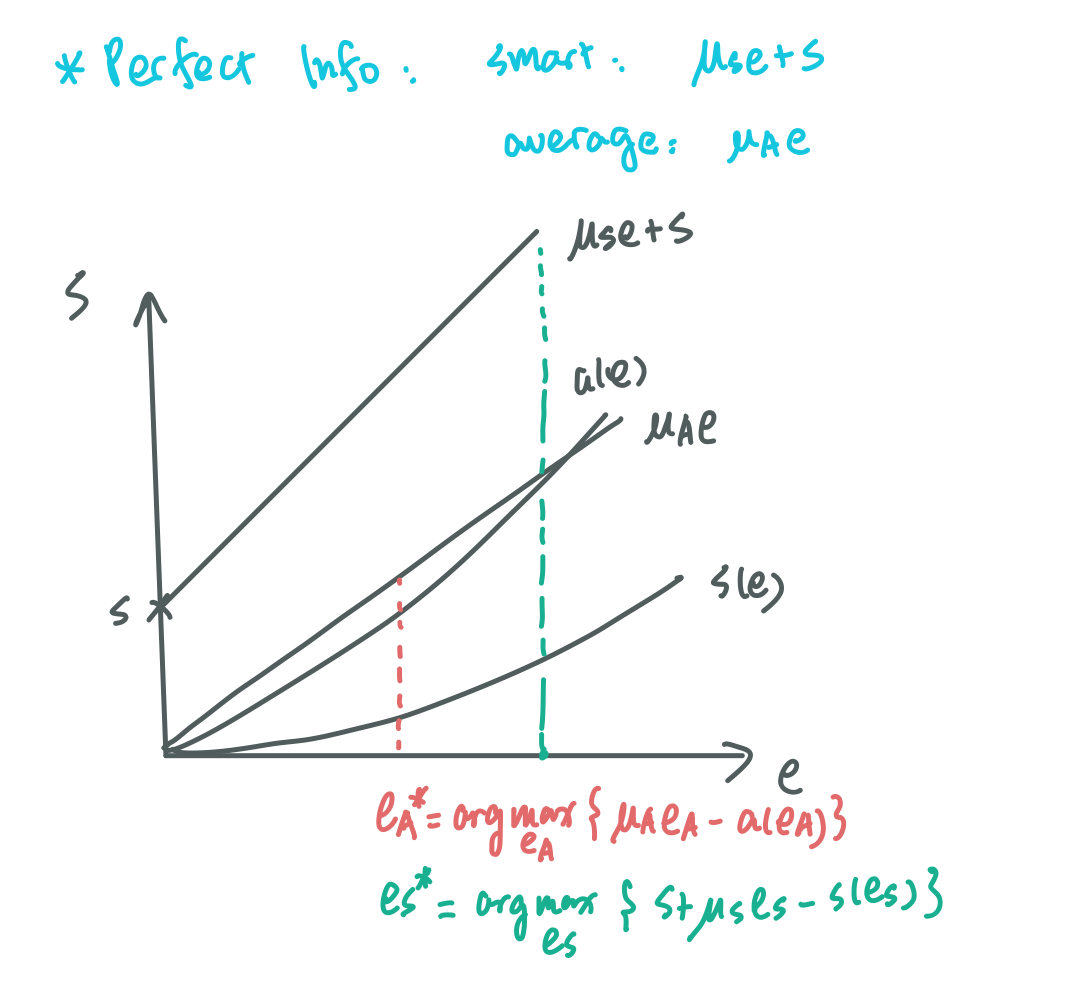 * Perfect Info: smart: μse+s
average: μAe
μse+s
S
a(e)
μAe
s(e)
s
e
eA* = arg max eA {μAeA - a(eA)}
es* = arg max es {s+μses - s(es)}